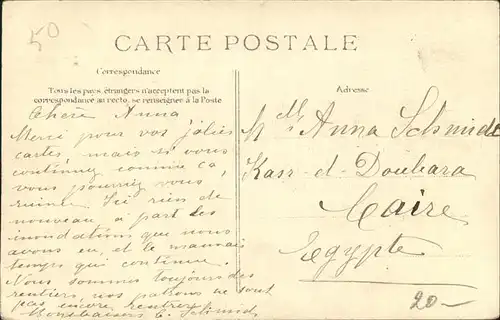 50
CARTE POSTALE
Correspondance
Tous les pays étrangers n'acceptent pas la
correspondance au recto, se renseigner à la Poste
Chère Anna
Merci pour vos jolies
cartes, mais si vous
continuez comme ça,
vous pourriez vous
ruiner. Ici rien de
nouveau à part des
inondations que nous
avons eu, et le mauvais
temps qui continue.
Nous sommes toujours des
rentiers, nos patrons ne sont
pas encore rentrer
C. Schmid
Adresse
Mdlle Anna Schmidt
Kasr-d-Doubara
Caire
Egypte
20-